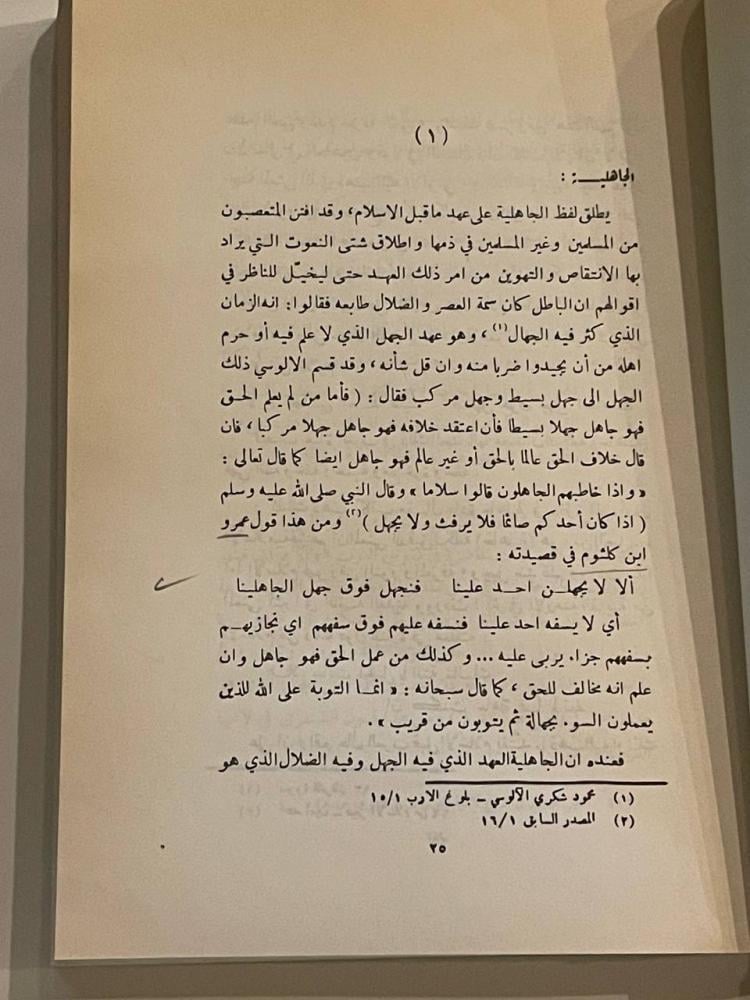 (١)
الجاهليـــة :
يطلق لفظ الجاهلية على عهد ماقبل الاسلام، وقد افتن المتعصبون
من المسلمين وغير المسلمين في ذمها واطلاق شتى النعوت التي يراد
بها الانتقاص والتهوين من امر ذلك العهد حتى ليخيّل للناظر في
اقوالهم ان الباطل كان سمة العصر والضلال طابعه فقالوا: انه الزمان
الذي كثر فيه الجهال(١)، وهو عهد الجهل الذي لا علم فيه أو حرم
اهله من أن يجيدوا ضربا منه وان قل شأنه، وقد قسم الالوسي ذلك
الجهل الى جهل بسيط وجهل مركب فقال : ( فأما من لم يعلم الحق
فهو جاهل جهلا بسيطا فأن اعتقد خلافه فهو جاهل جهلا مركبا، فان
قال خلاف الحق عالما بالحق أو غير عالم فهو جاهل ايضا كما قال تعالى :
« واذا خاطبهم الجاهلون قالوا سلاما » وقال النبي صلى الله عليه وسلم
( اذا كان أحدكم صائما فلا يرفث ولا يجهل )(٢) ومن هذا قول عمرو
ابن كلثوم في قصيدته :
ألا لا يجهلـن احـد علينا فنجهل فوق جهل الجاهلينا
أي لا يسفه احد علينا فنسفه عليهم فوق سفههم اي نجازيهـم
بسفههم جزاء يربى عليه ... وكذلك من عمل الحق فهو جاهل وان
علم انه مخالف للحق، كما قال سبحانه : « انمـا التوبة على الله للذين
يعملون السوء بجهالة ثم يتوبون من قريب ».
فعنده ان الجاهلية العهد الذي فيه الجهل وفيه الضلال الذي هو
(١) محمود شكري الآلوسي ـ بلوغ الارب ١/١٥
(٢) المصدر السابق ١/١٦
٢٥